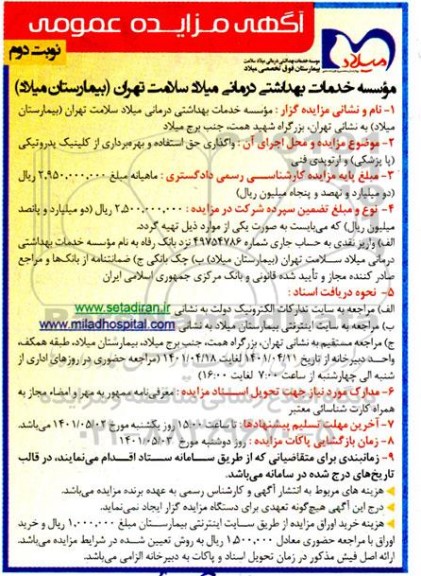 آگهی مزایده عمومی
نوبت دوم
میلاد
موسسه خدمات بهداشتی درمانی میلاد سلامت
بیمارستان فوق تخصصی میلاد
مؤسسه خدمات بهداشتی درمانی میلاد سلامت تهران (بیمارستان میلاد)
۱- نام و نشانی مزایده گزار : مؤسسه خدمات بهداشتی درمانی میلاد سلامت تهران (بیمارستان
میلاد) به نشانی تهران، بزرگراه شهید همت، جنب برج میلاد
۲- موضوع مزایده و محل اجرای آن : واگذاری حق استفاده و بهره‌برداری از کلینیک پدروتیکی
(پا پزشکی) و ارتوپدی فنی
۳- مبلغ پایه مزایده کارشناسی رسمی دادگستری : ماهیانه مبلغ ۲,۹۵۰,۰۰۰,۰۰۰ ریال
(دو میلیارد و نهصد و پنجاه میلیون ریال)
۴- نوع و مبلغ تضمین سپرده شرکت در مزایده : ۲,۵۰۰,۰۰۰,۰۰۰ ریال (دو میلیارد و پانصد
میلیون ریال) که می‌بایست به صورت یکی از موارد ذیل تهیه گردد.
الف) واریز نقدی به حساب جاری شماره ۴۹۷۵۴۷۸۶ نزد بانک رفاه به نام مؤسسه خدمات بهداشتی
درمانی میلاد سلامت تهران (بیمارستان میلاد) ب) چک بانکی ج) ضمانتنامه از بانک‌ها و مراجع
صادر کننده مجاز و تأیید شده قانونی و بانک مرکزی جمهوری اسلامی ایران
۵- نحوه دریافت اسناد :
الف) مراجعه به سایت تدارکات الکترونیک دولت به نشانی www.setadiran.ir
ب) مراجعه به سایت اینترنتی بیمارستان میلاد به نشانی www.miladhospital.com
ج) مراجعه مستقیم به نشانی تهران، بزرگراه همت، جنب برج میلاد، بیمارستان میلاد، طبقه همکف،
واحد دبیرخانه از تاریخ ۱۴۰۱/۰۴/۱۱ لغایت ۱۴۰۱/۰۴/۱۸ (مراجعه حضوری در روزهای اداری از
شنبه الی چهارشنبه از ساعت ۷:۰۰ لغایت ۱۶:۰۰)
۶- مدارک مورد نیاز جهت تحویل اسناد مزایده : معرفی‌نامه ممهور به مهر و امضاء مجاز به
همراه کارت شناسائی معتبر
۷- آخرین مهلت تسلیم پیشنهادها: تا ساعت ۱۵:۰۰ روز یکشنبه مورخ ۱۴۰۱/۰۵/۰۲ می‌باشد.
۸- زمان بازگشایی پاکات مزایده : روز دوشنبه مورخ ۱۴۰۱/۰۵/۰۳
۹- زمانبندی برای متقاضیانی که از طریق سامانه ستاد اقدام می‌نمایند، در قالب
تاریخ‌های درج شده در سامانه می‌باشد.
هزینه های مربوط به انتشار آگهی و کارشناس رسمی به عهده برنده مزایده می‌باشد.
درج این آگهی هیچ‌گونه تعهدی برای دستگاه مزایده گزار ایجاد نمی‌نماید.
هزینه خرید اوراق مزایده از طریق سایت اینترنتی بیمارستان مبلغ ۱,۰۰۰,۰۰۰ ریال و خرید
اوراق با مراجعه حضوری معادل ۱,۵۰۰,۰۰۰ ریال به روش تعیین شده در شرایط مزایده می‌باشد.
ارائه اصل فیش مذکور در زمان تحویل اسناد و پاکات به دبیرخانه الزامی می‌باشد.